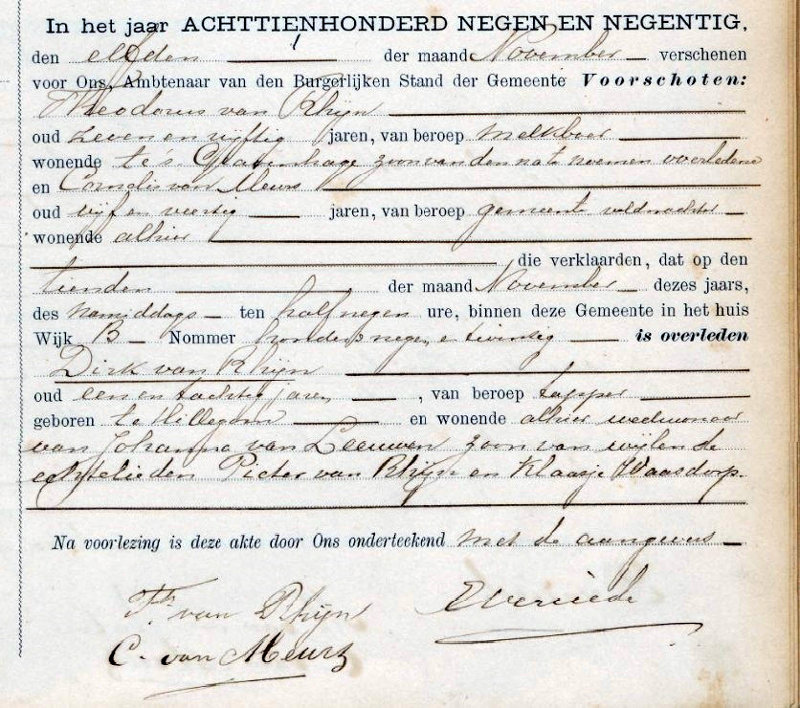 In het jaar ACHTTIENHONDERD NEGEN EN NEGENTIG,
den elfden der maand November verschenen
voor Ons, Ambtenaar van den Burgerlijken Stand der Gemeente Voorschoten:
Theodorus van Rhijn
oud zeven en vijftig jaren, van beroep melkboer
wonende te s Gravenhage zoon van den na te noemen overledene
en Cornelis van Meurs
oud vijf en veertig jaren, van beroep gemeente veldwachter
wonende alhier
die verklaarden, dat op den
tienden der maand November dezes jaars,
des namiddags ten half negen ure, binnen deze Gemeente in het huis
Wijk B Nommer honderd negen en twintig is overleden
Dirk van Rhijn
oud een en tachtig jaren, van beroep tapper
geboren te Hillegom en wonende alhier weduwnaar
van Johanna van Leeuwen zoon van wijlen de
echtelieden Pieter van Rhijn en Klaasje Waasdorp.
Na voorlezing is deze akte door Ons onderteekend met de aangevers
Th. van Rhijn
C. van Meurs